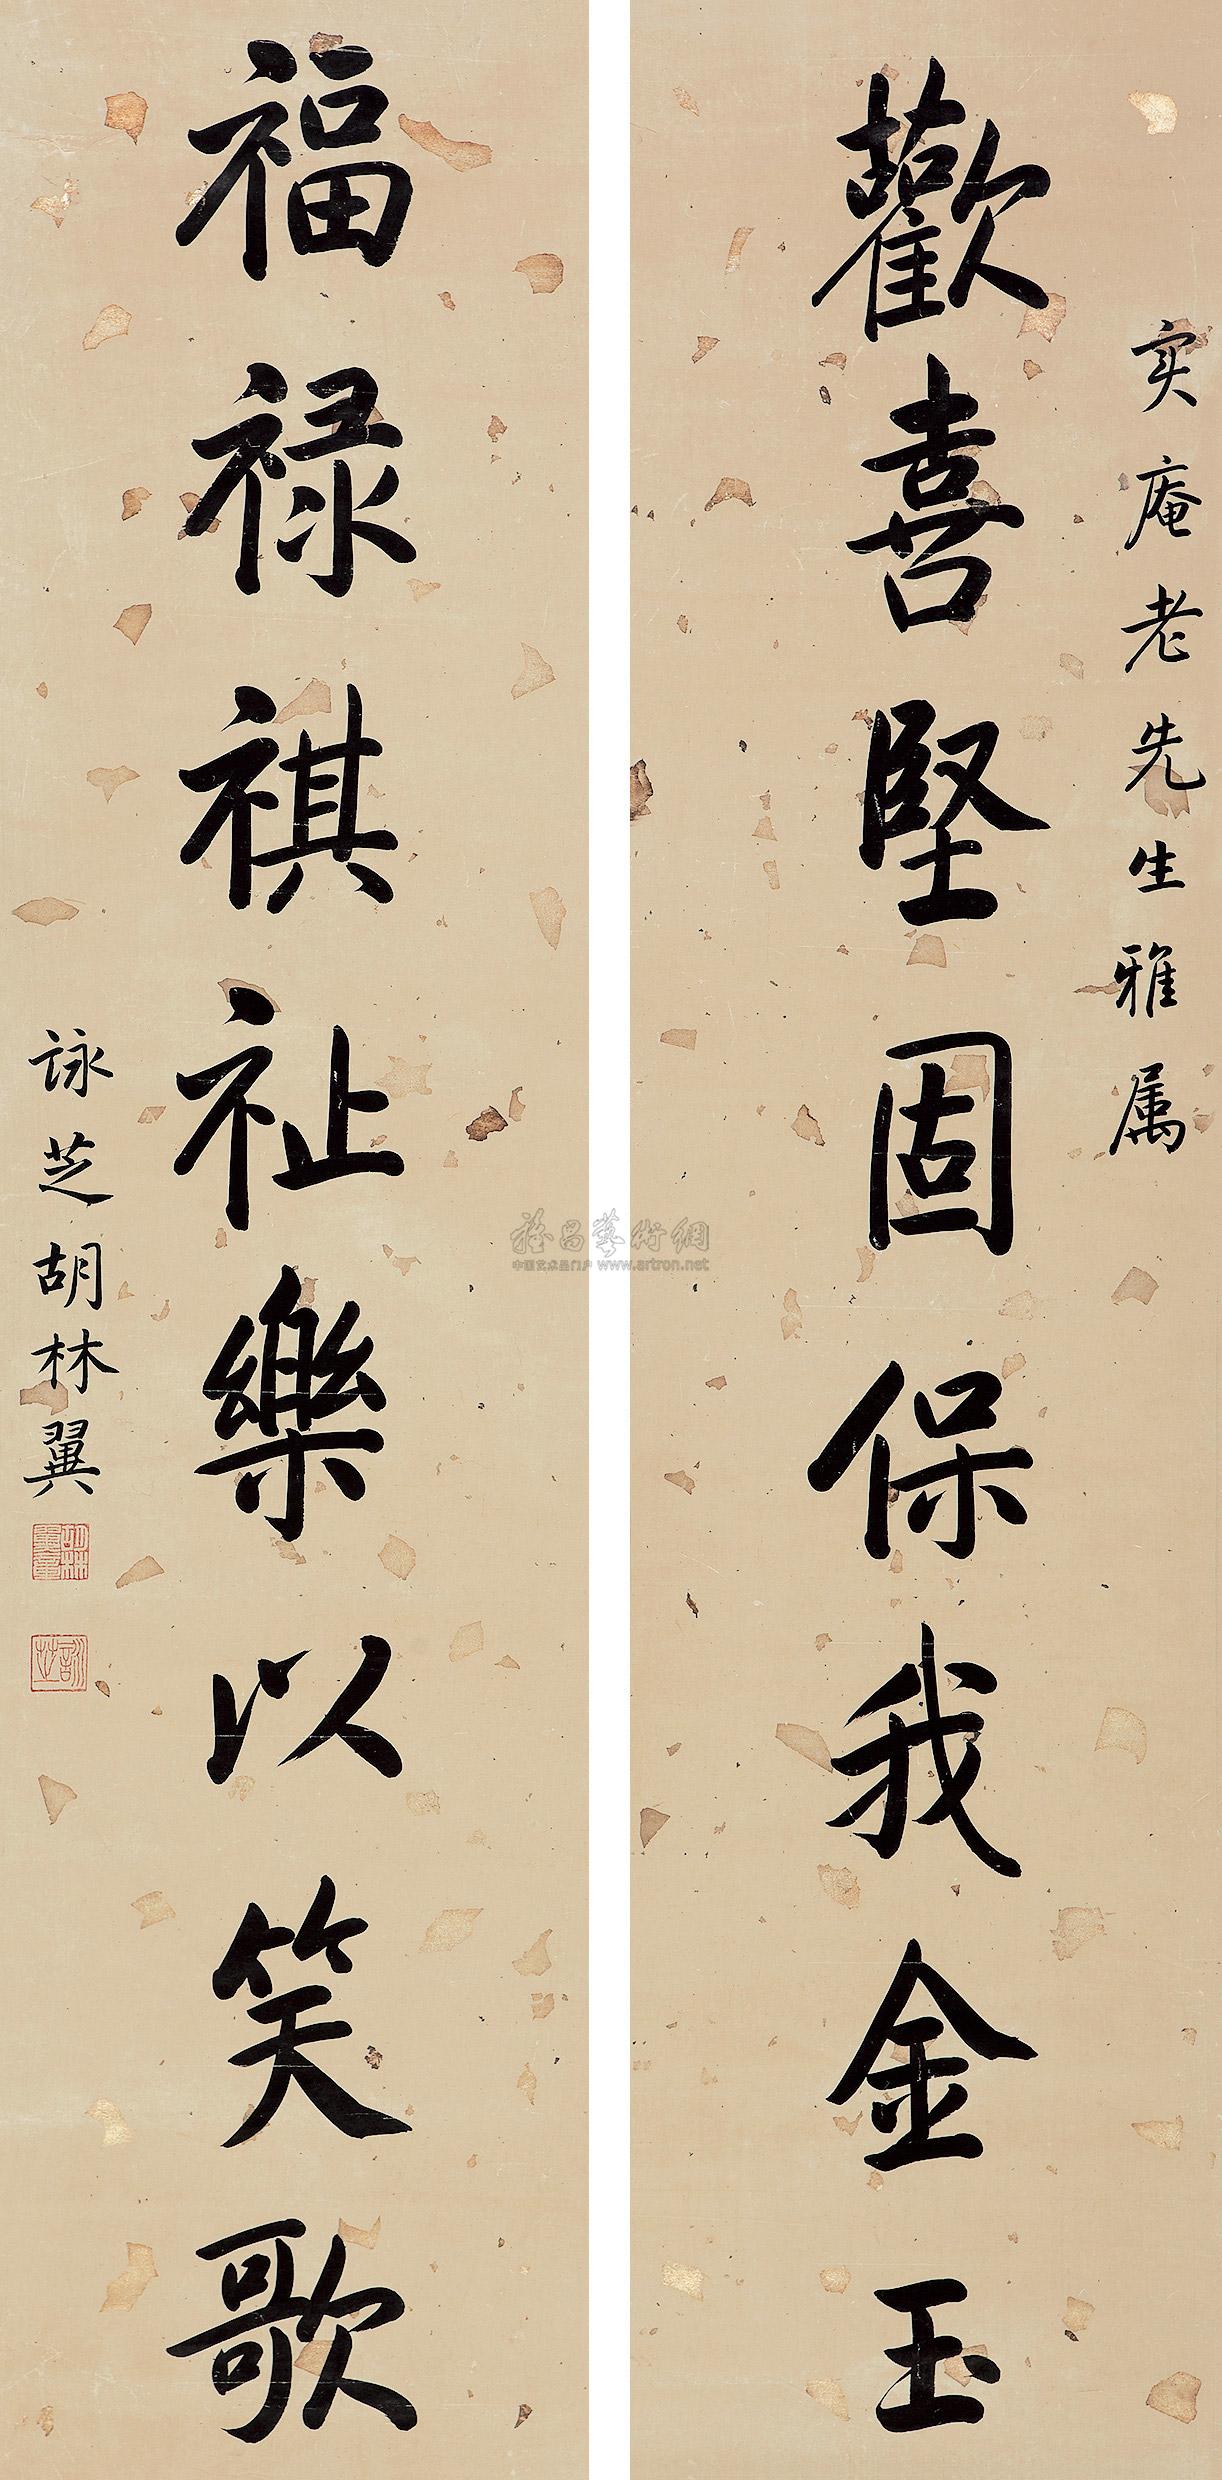 实庵老先生雅属
歡喜堅固保我金玉
福禄祺祉樂以笑歌
詠芝胡林翼
中国艺术品门户 www.artron.net